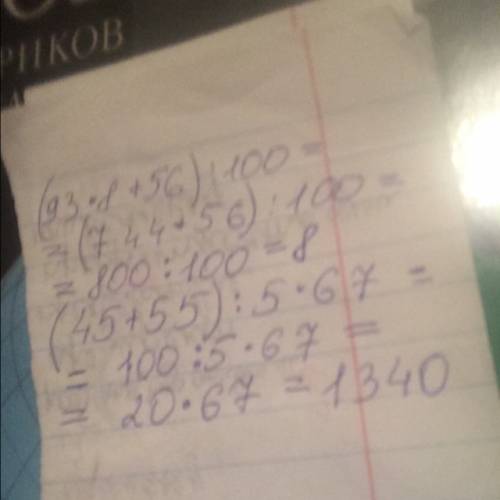 РИКОВ
(93·8+56):100=
=(744+56):100=
=800:100=8
(45+55):5·67=
=100:5·67=
=20·67=1340